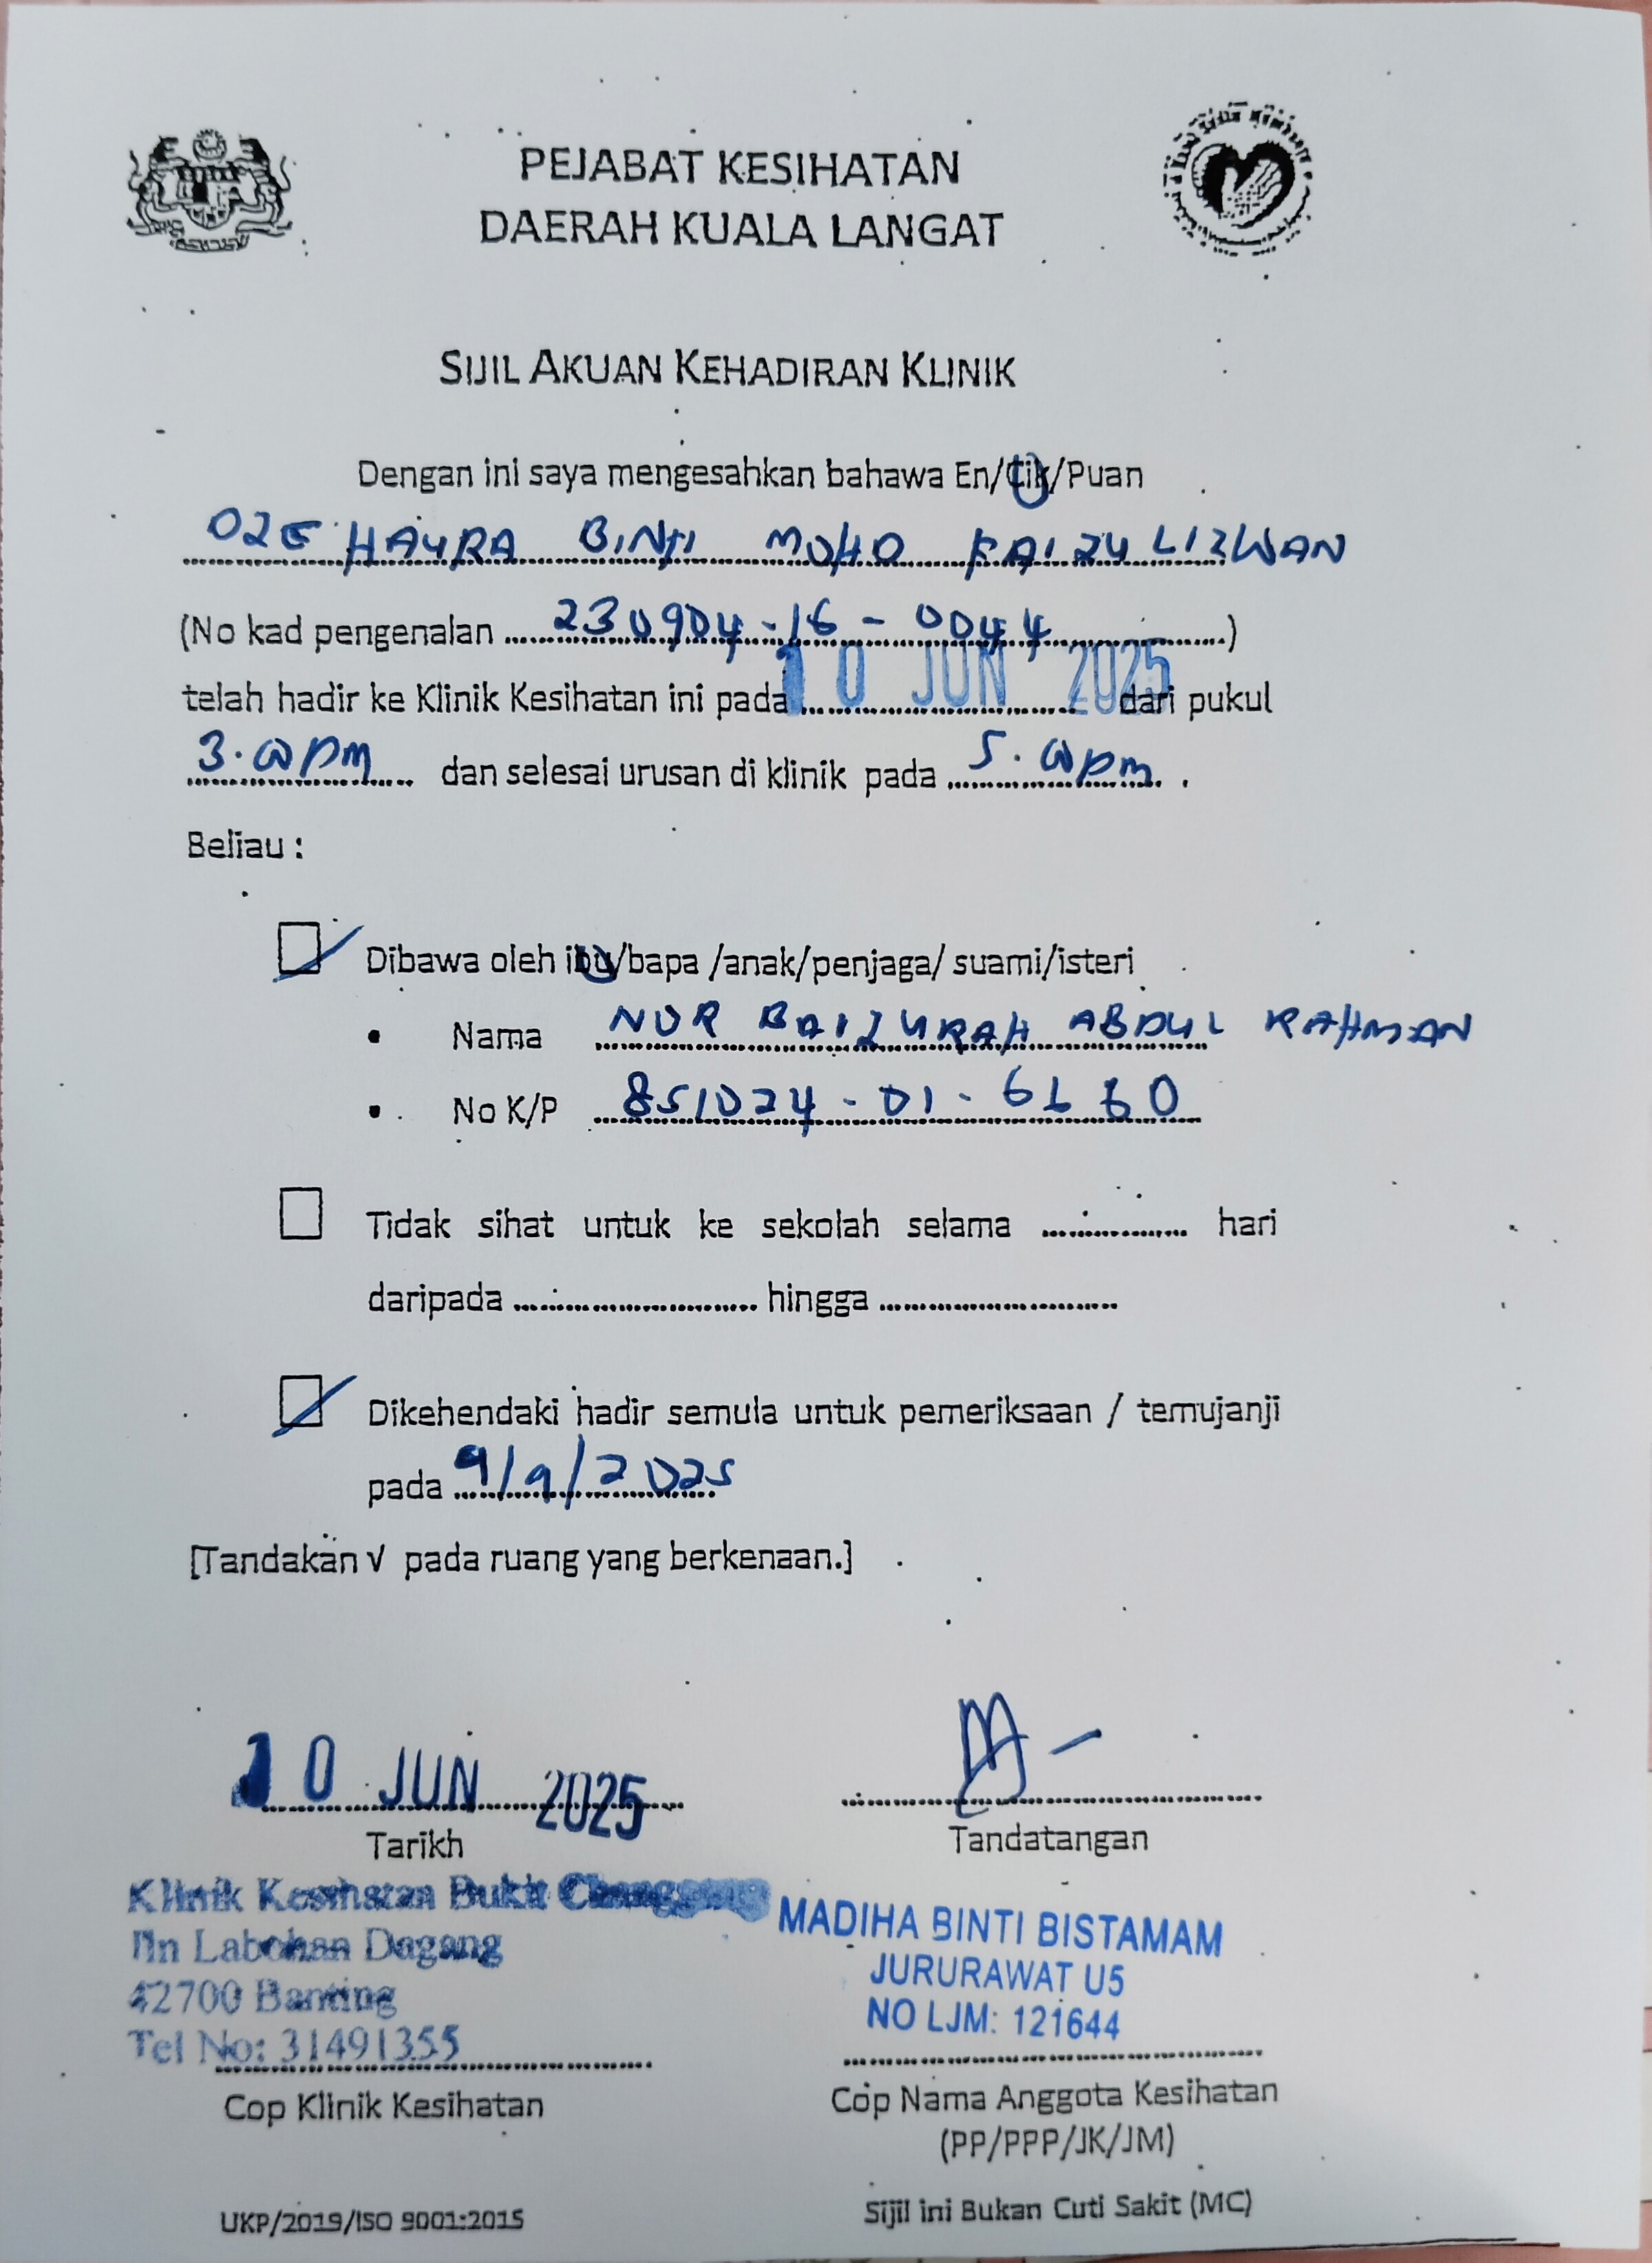 PEJABAT KESIHATAN
DAERAH KUALA LANGAT
SIJIL AKUAN KEHADIRAN KLINIK
Dengan ini saya mengesahkan bahawa En/Cik/Puan
OZE HAURA BINTI MOHD FAIZULIZWAN
(No kad pengenalan 230904-16-0044)
telah hadir ke Klinik Kesihatan ini pada 10 JUN 2025 dari pukul
3.00pm dan selesai urusan di klinik pada 5.00pm.
Beliau :
Dibawa oleh ibu/bapa /anak/penjaga/ suami/isteri
• Nama NUR BAIZURAH ABDUL RAHMAN
• No K/P 851024-01-
Tidak sihat untuk ke sekolah selama ........ hari
daripada ........ hingga ........
Dikehendaki hadir semula untuk pemeriksaan / temujanji
pada 9/9/2025
[Tandakan √ pada ruang yang berkenaan.]
10 JUN 2025
Tarikh
Tandatangan
Klinik Kesihatan Bukit Changgang
Jln Labohan Dagang
42700 Banting
Tel No: 31491355
MADIHA BINTI BISTAMAM
JURURAWAT U5
NO LJM: 121644
Cop Klinik Kesihatan
Cop Nama Anggota Kesihatan
(PP/PPP/JK/JM)
UKP/2019/ISO 9001:2015
Sijil ini Bukan Cuti Sakit (MC)